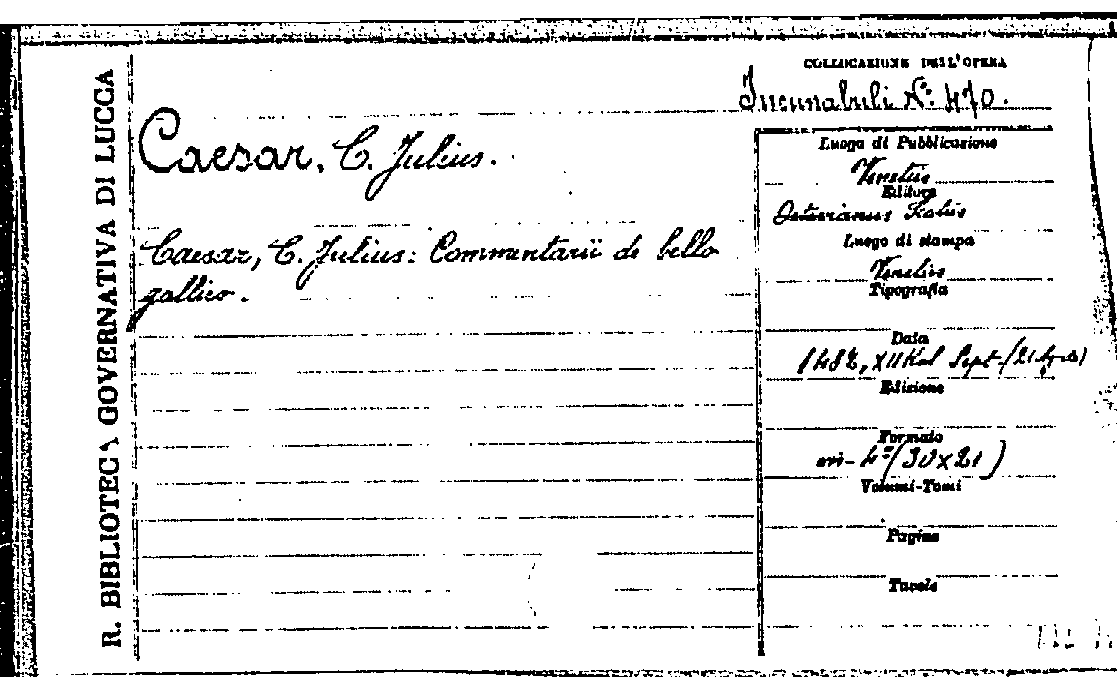 R. BIBLIOTECA GOVERNATIVA DI LUCCA
COLLOCAZIONE DELL'OPERA
Incunabuli N.º 470.
Caesar, C. Julius.
Caesar, C. Julius: Commentarii de bello
gallico.
Luogo di Pubblicazione
Venetiis
Editore
Octavianus Scotus
Luogo di stampa
Venetiis
Tipografia
Data
1482, XII Kal Sept (21 Ag
Edizione
Formato
4º (30x21)
Volumi-Tomi
Pagine
Tavole